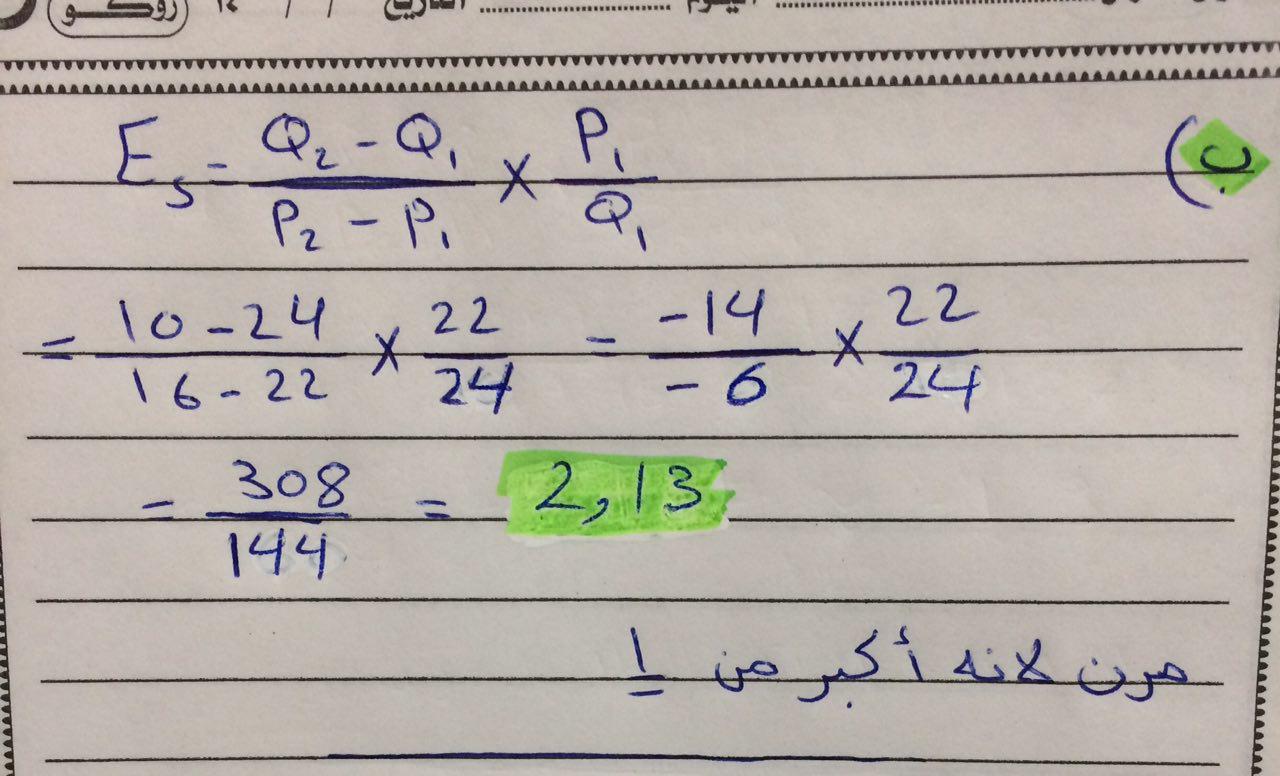 روكو
التاريخ / / ١٤
اليوم
ب)
E_s = (Q₂ - Q₁)/(P₂ - P₁) × P₁/Q₁
= (10 - 24)/(16 - 22) × 22/24 = -14/-6 × 22/24
= 308/144 = 2,13
مرن لانه أكبر من 1